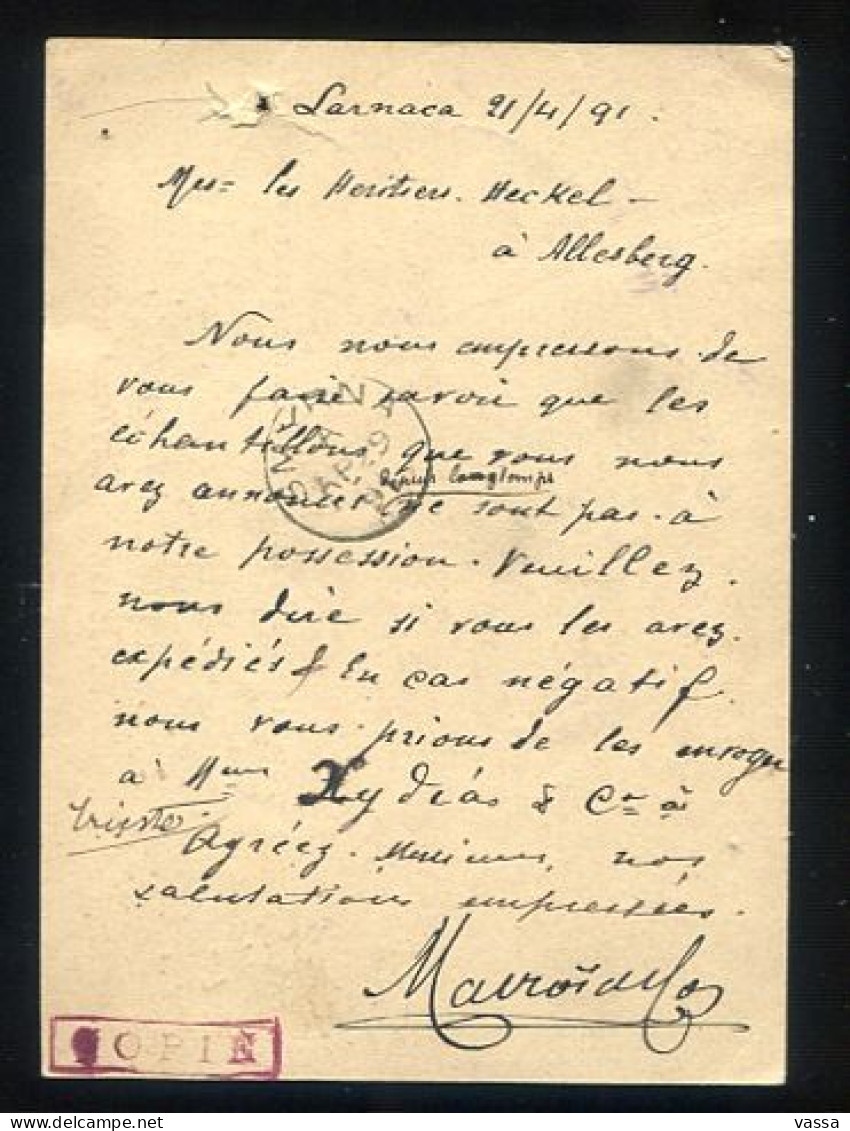 Larnaca 21/4/91.
Mrs= les Heritiers. Heckel –
à Allersberg.
Nous nous empressons de
vous faire savoir que les
échantillons, que vous nous
depuis longtemps
avez annoncer ne sont pas à
notre possession. Veuillez
nous dire si vous les avez
expédiés & En cas négatif
nous vous prions de les envoyer
à Mrs Xydiás & Co à
Trieste.
Agréez. Messieurs, nos
salutations empressées.
COPIE
vassa